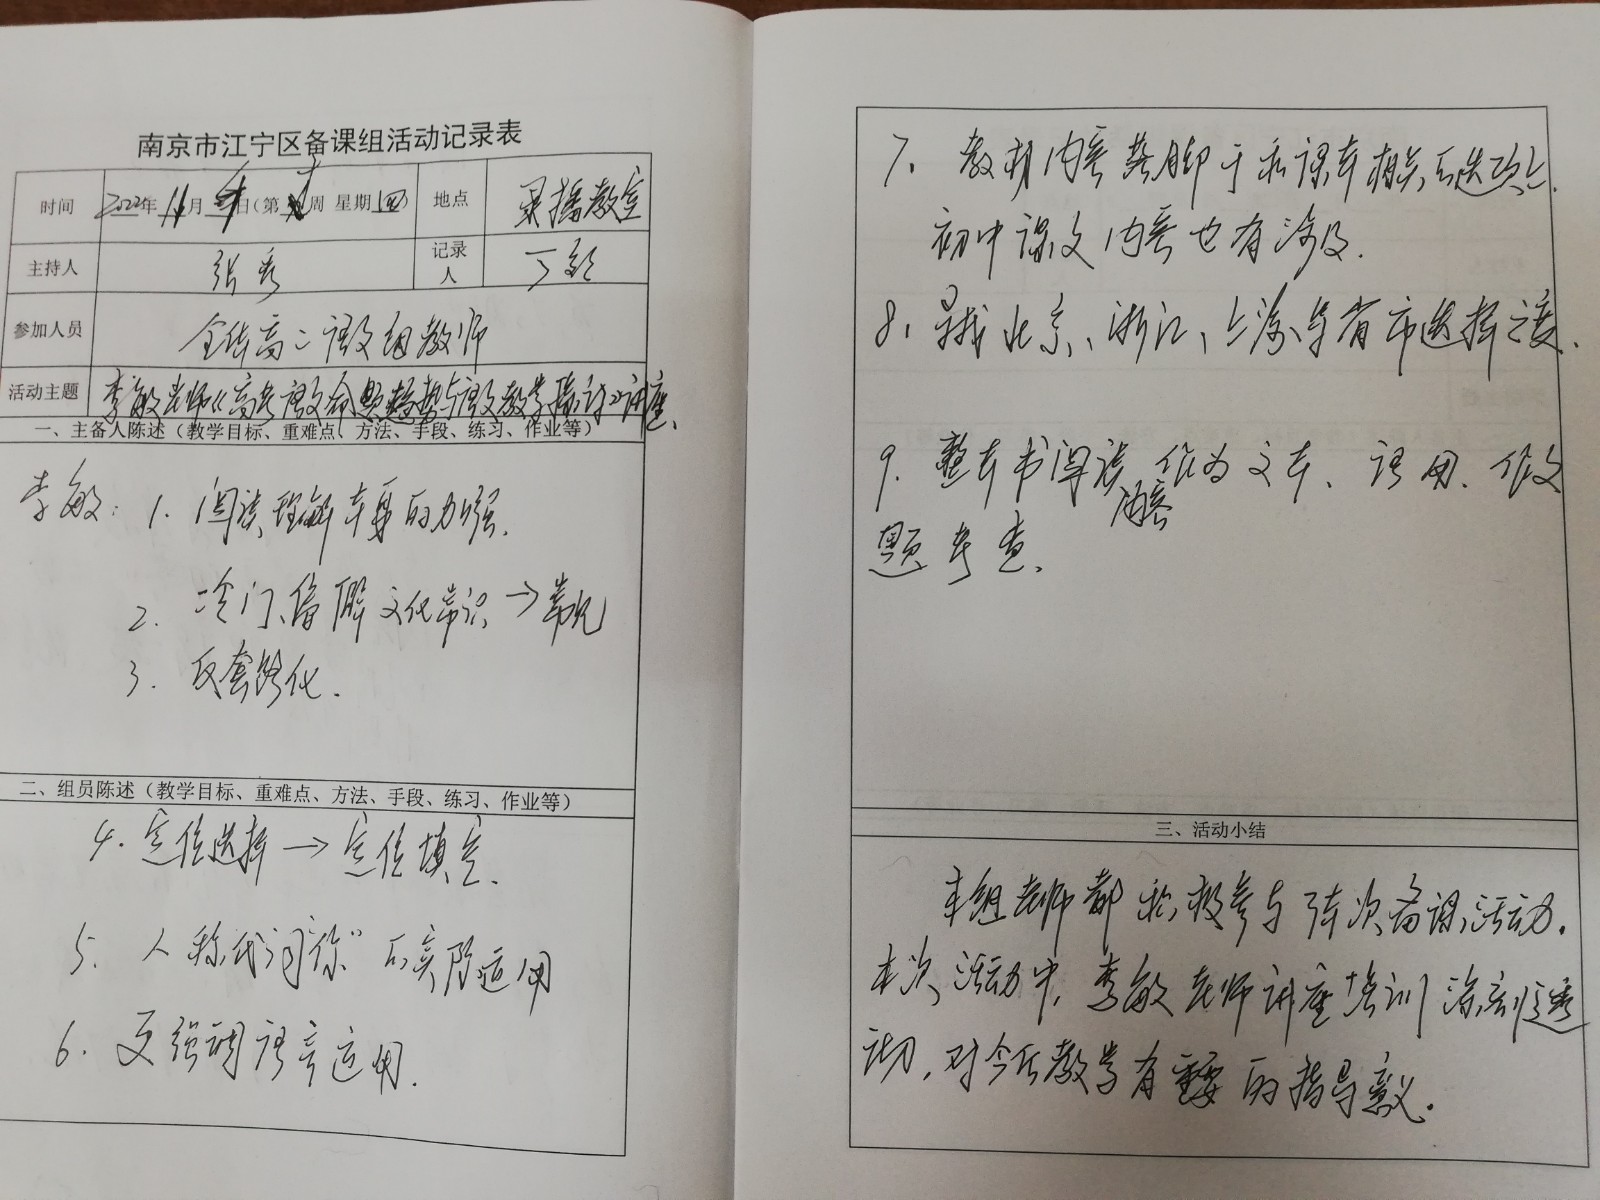 南京市江宁区备课组活动记录表
时间 2022年11月 日(第 周 星期四) 地点 录播教室
主持人 张秀 记录人 丁
参加人员 全体高二语文组教师
活动主题 李敏老师《高考语文命题趋势与语文教学探讨》讲座.
一、主备人陈述（教学目标、重难点、方法、手段、练习、作业等）
李敏: 1. 阅读理解本身的加强.
2. 冷门、偏僻文化常识→常见
3. 反套路化.
二、组员陈述（教学目标、重难点、方法、手段、练习、作业等）
4. 定位选择→定位填空.
5. 人称代词"你"的实际运用
6. 更强调语言运用.
7. 教材内容落脚于和课本相关的选项上.
初中课文内容也有涉及.
8. 寻找北京、浙江、上海等省市选择之变.
9. 整本书阅读内容作为文本、语用、作文
题考查.
三、活动小结
本组老师都积极参与此次备课活动.
本次活动中,李敏老师讲座培训深刻透
彻,对今后教学有重要的指导意义.